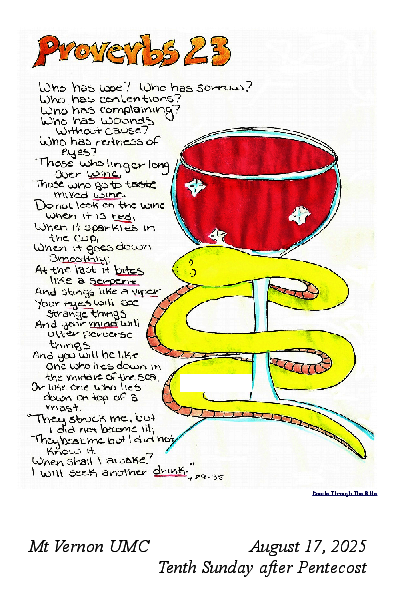 Proverbs 23
Who has woe? Who has sorrow?
Who has contentions?
Who has complaining?
Who has wounds
without cause?
Who has redness of
eyes?
Those who linger long
over wine.
Those who go to taste
mixed wine.
Do not look on the wine
when it is red,
When it sparkles in
the cup,
When it goes down
Smoothly;
At the last it bites
like a serpent
And stings like a viper
Your eyes will see
strange things
And your mind will
utter perverse
things
And you will be like
One who lies down in
the middle of the sea,
Or like one who lies
down on top of a
mast.
"They struck me, but
I did not become ill;
They beat me but I did not
know it.
When shall I awake?
I will seek another drink."
29-35
Doodle Through The Bible
Mt Vernon UMC August 17, 2025
Tenth Sunday after Pentecost